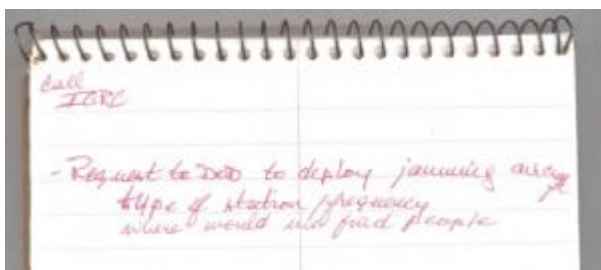 Call
ICRC
- Request to DOD to deploy jamming
type of station / frequency
where would we find people